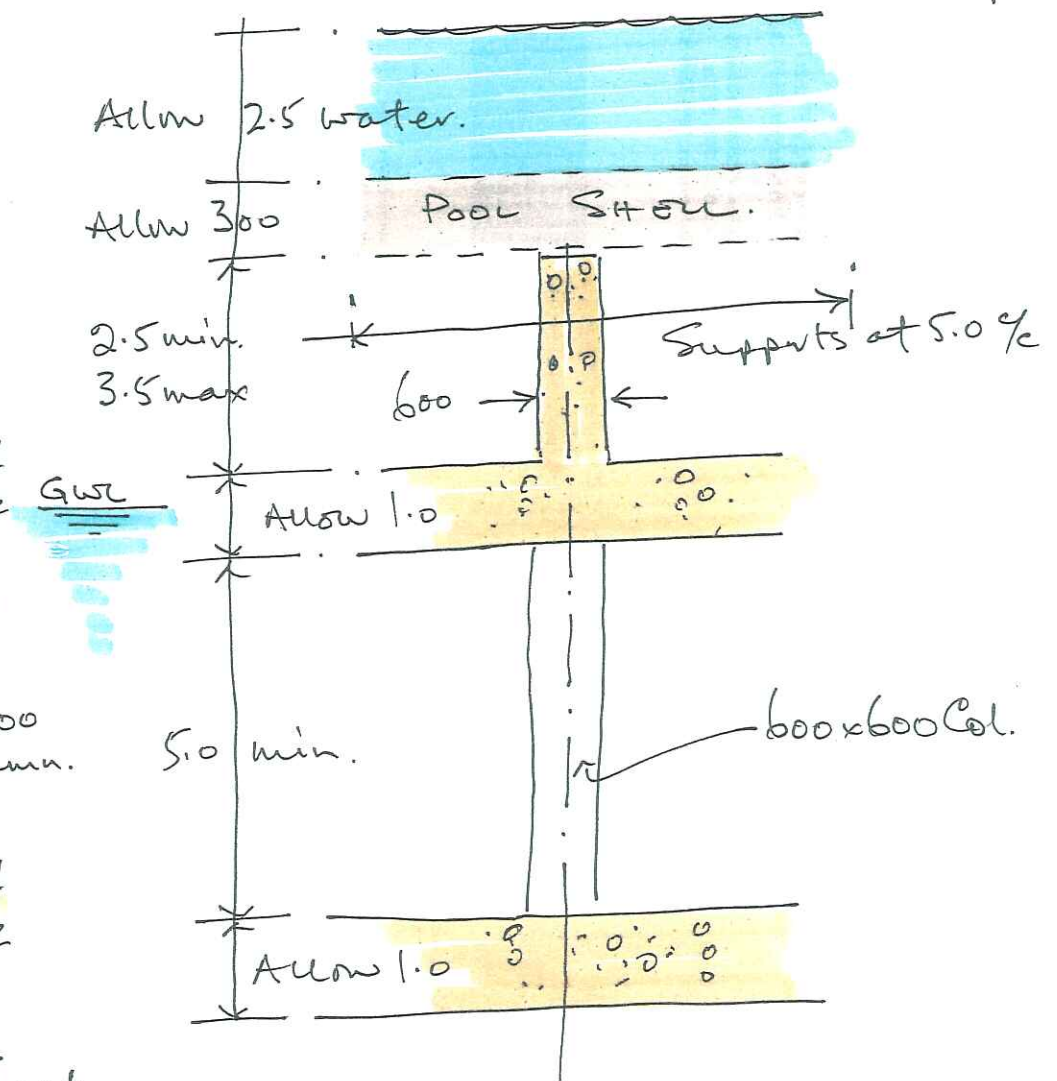 Allow 2.5 water.
Allow 300
POOL SHELL.
2.5 min.
3.5 max
Supports at 5.0 c/c
600
GWL
Allow 1.0
00
5.0 min.
600x600 Col.
mn.
Allow 1.0